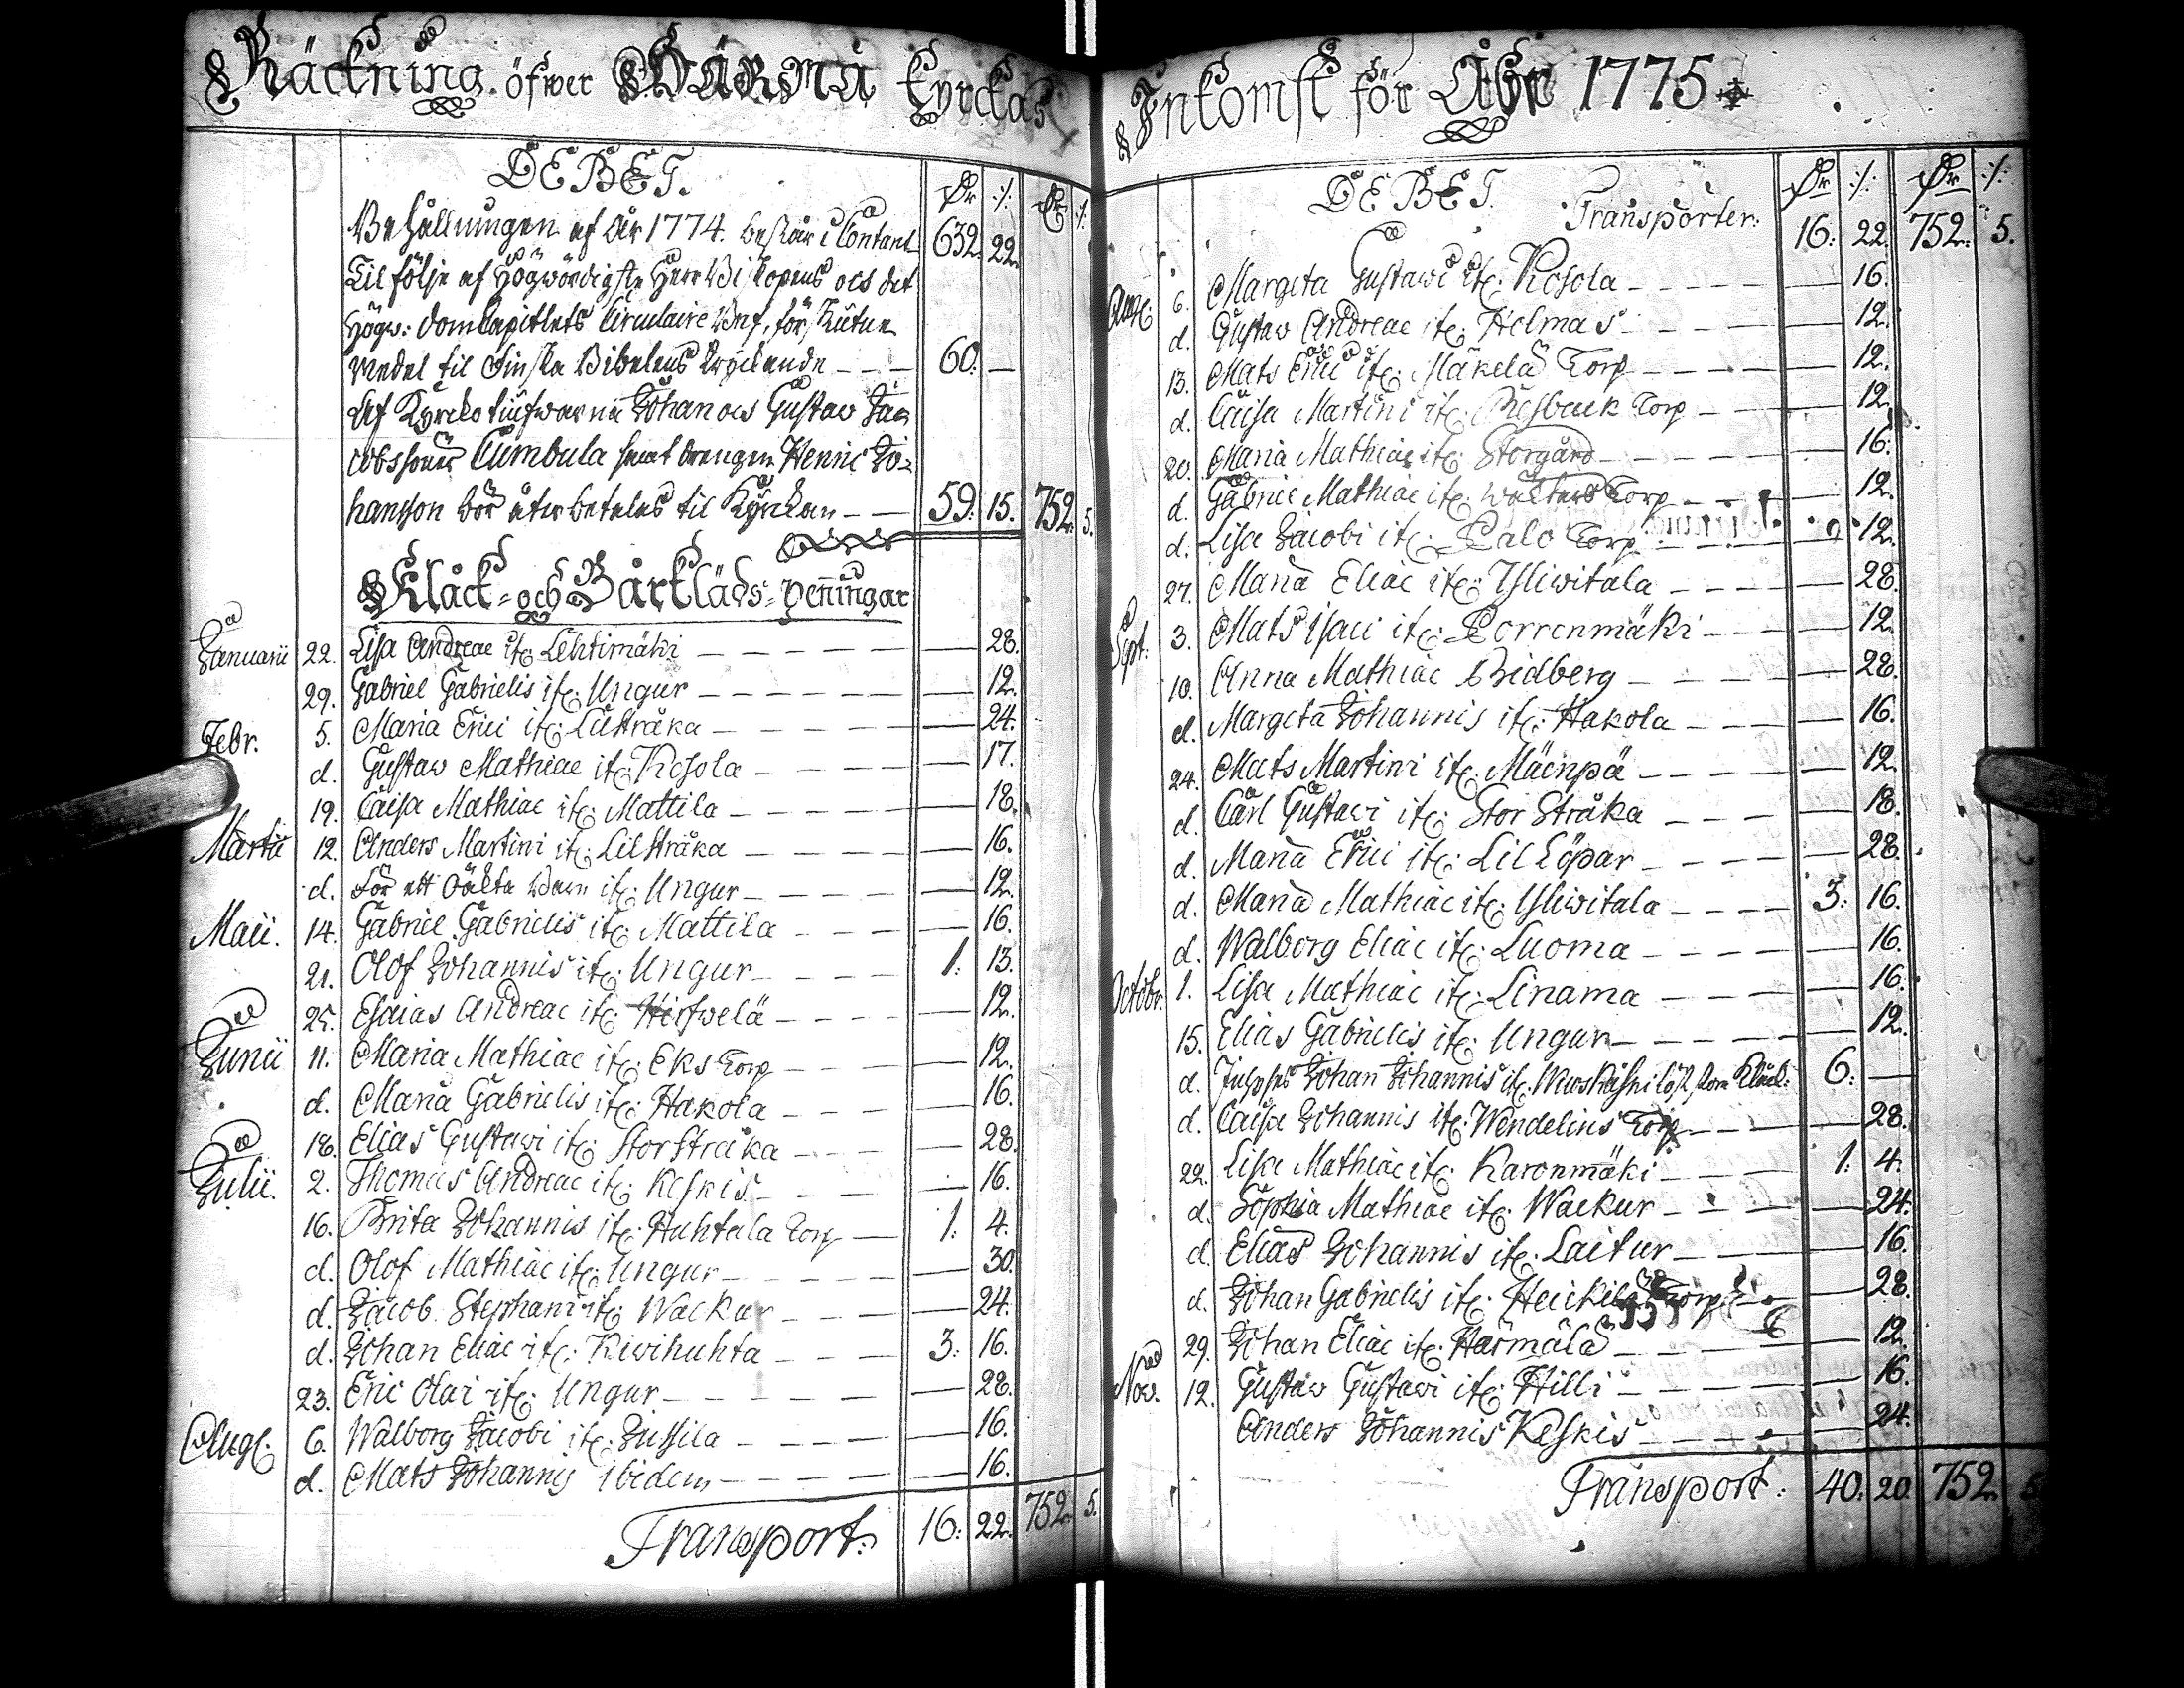 Räckning öfwer HÄRMÄ Kyrckas
DEBET.
Dr ./. Dr ./.
Behållningen af År 1774. består i Contant 632. 22.
Til följe af Högwördigste Herr Biskopens och det
Högw: DomCapitlets Circulaire
medel til Finska Bibelens tryckande 60. —
Af Kyrcko Johan och Gustav Ja-
cobssöner Cumbula samt drengen Henric Jo-
hansson bör återbetalas til Kyrckan 59. 15. 752. 5.
Klåck- och Bårkläds-penningar
Januarii 22. Lisa Andreae it: Lehtimäki — 28.
29. Gabriel Gabrielis it: Ungur — 12.
Febr. 5. Maria Erici it: Lilstråka — 24.
d. Gustav Mathiae it: Kosola — 17.
19. Caisa Mathiae it: Mattila — 18.
Martii 12. Anders Martini it: Lilstråka — 16.
d. För ett barn it: Ungur — 12.
Maii. 14. Gabriel Gabrielis it: Mattila — 16.
21. Olof Johannis it: Ungur 1. 13.
25. Esaias Andreae it: Hirfwelä — 12.
Junii 11. Maria Mathiae it: Eks Torp — 12.
d. Maria Gabrielis it: Hakola — 16.
18. Elias Gustavi it: Storstråka — 28.
Julii. 2. Thomas Andreae it: Keskis — 16.
16. Brita Johannis it: Huhtala Torp 1: 4.
d. Olof Mathiae it: Ungur — 30.
d. Jacob Stephani it: Wackur — 24.
d. Johan Eliae it: Kiwihuhta 3: 16.
23. Eric Olai it: Ungur — 28.
Aug: 6. Walborg Jacobi it: Jussila — 16.
d. Mats Johannis ibidem — 16.
Transport: 16: 22. 752. 5.
Inkomst för Åhr 1775
DEBET. Dr ./. Dr ./.
Transporter: 16: 22. 752: 5.
Aug: 6. Margeta Gustavi it: Kosola — 16.
d. Gustav Andreae it: Holmas — 12.
13. Mats Erici it: Mäkelä Torp — 12.
d. Caisa Martini it: Torp — 12.
20. Maria Mathiae it: Storgård — 16.
d. Gabriel Mathiae it: Torp — 12.
d. Lisa Jacobi it: Palo Torp — 12.
27. Maria Eliae it: Yliwitala — 28.
Sept: 3. Mats Isaci it: Porrenmäki — 12.
10. Anna Mathiae Bidberg — 28.
d. Margeta Johannis it: Hakola — 16.
24. Mats Martini it: Mäenpä — 12.
d. Carl Gustavi it: Stor Stråka — 18.
d. Maria Erici it: Lil Löpar — 28.
d. Maria Mathiae it: Yliwitala 3: 16.
d. Walborg Eliae it: Luoma — 16.
Octobr: 1. Lisa Mathiae it: Linama — 16.
15. Elias Gabrielis it: Ungur — 12.
d. Johan Johannis it: Kläd: 6: —
d. Caisa Johannis it: Wendelins Torp — 28.
22. Lisa Mathiae it: Karonmäki 1: 4.
d. Sophia Mathiae it: Wackur — 24.
d. Elias Johannis it: Laitur — 16.
d. Johan Gabrielis it: Heickilä Torp — 28.
29. Johan Eliae it: Härmälä — 12.
Nov. 12. Gustav Gustavi it: Hilli — 16.
Anders Johannis Keskis — 24.
Transport: 40: 20. 752. 5.